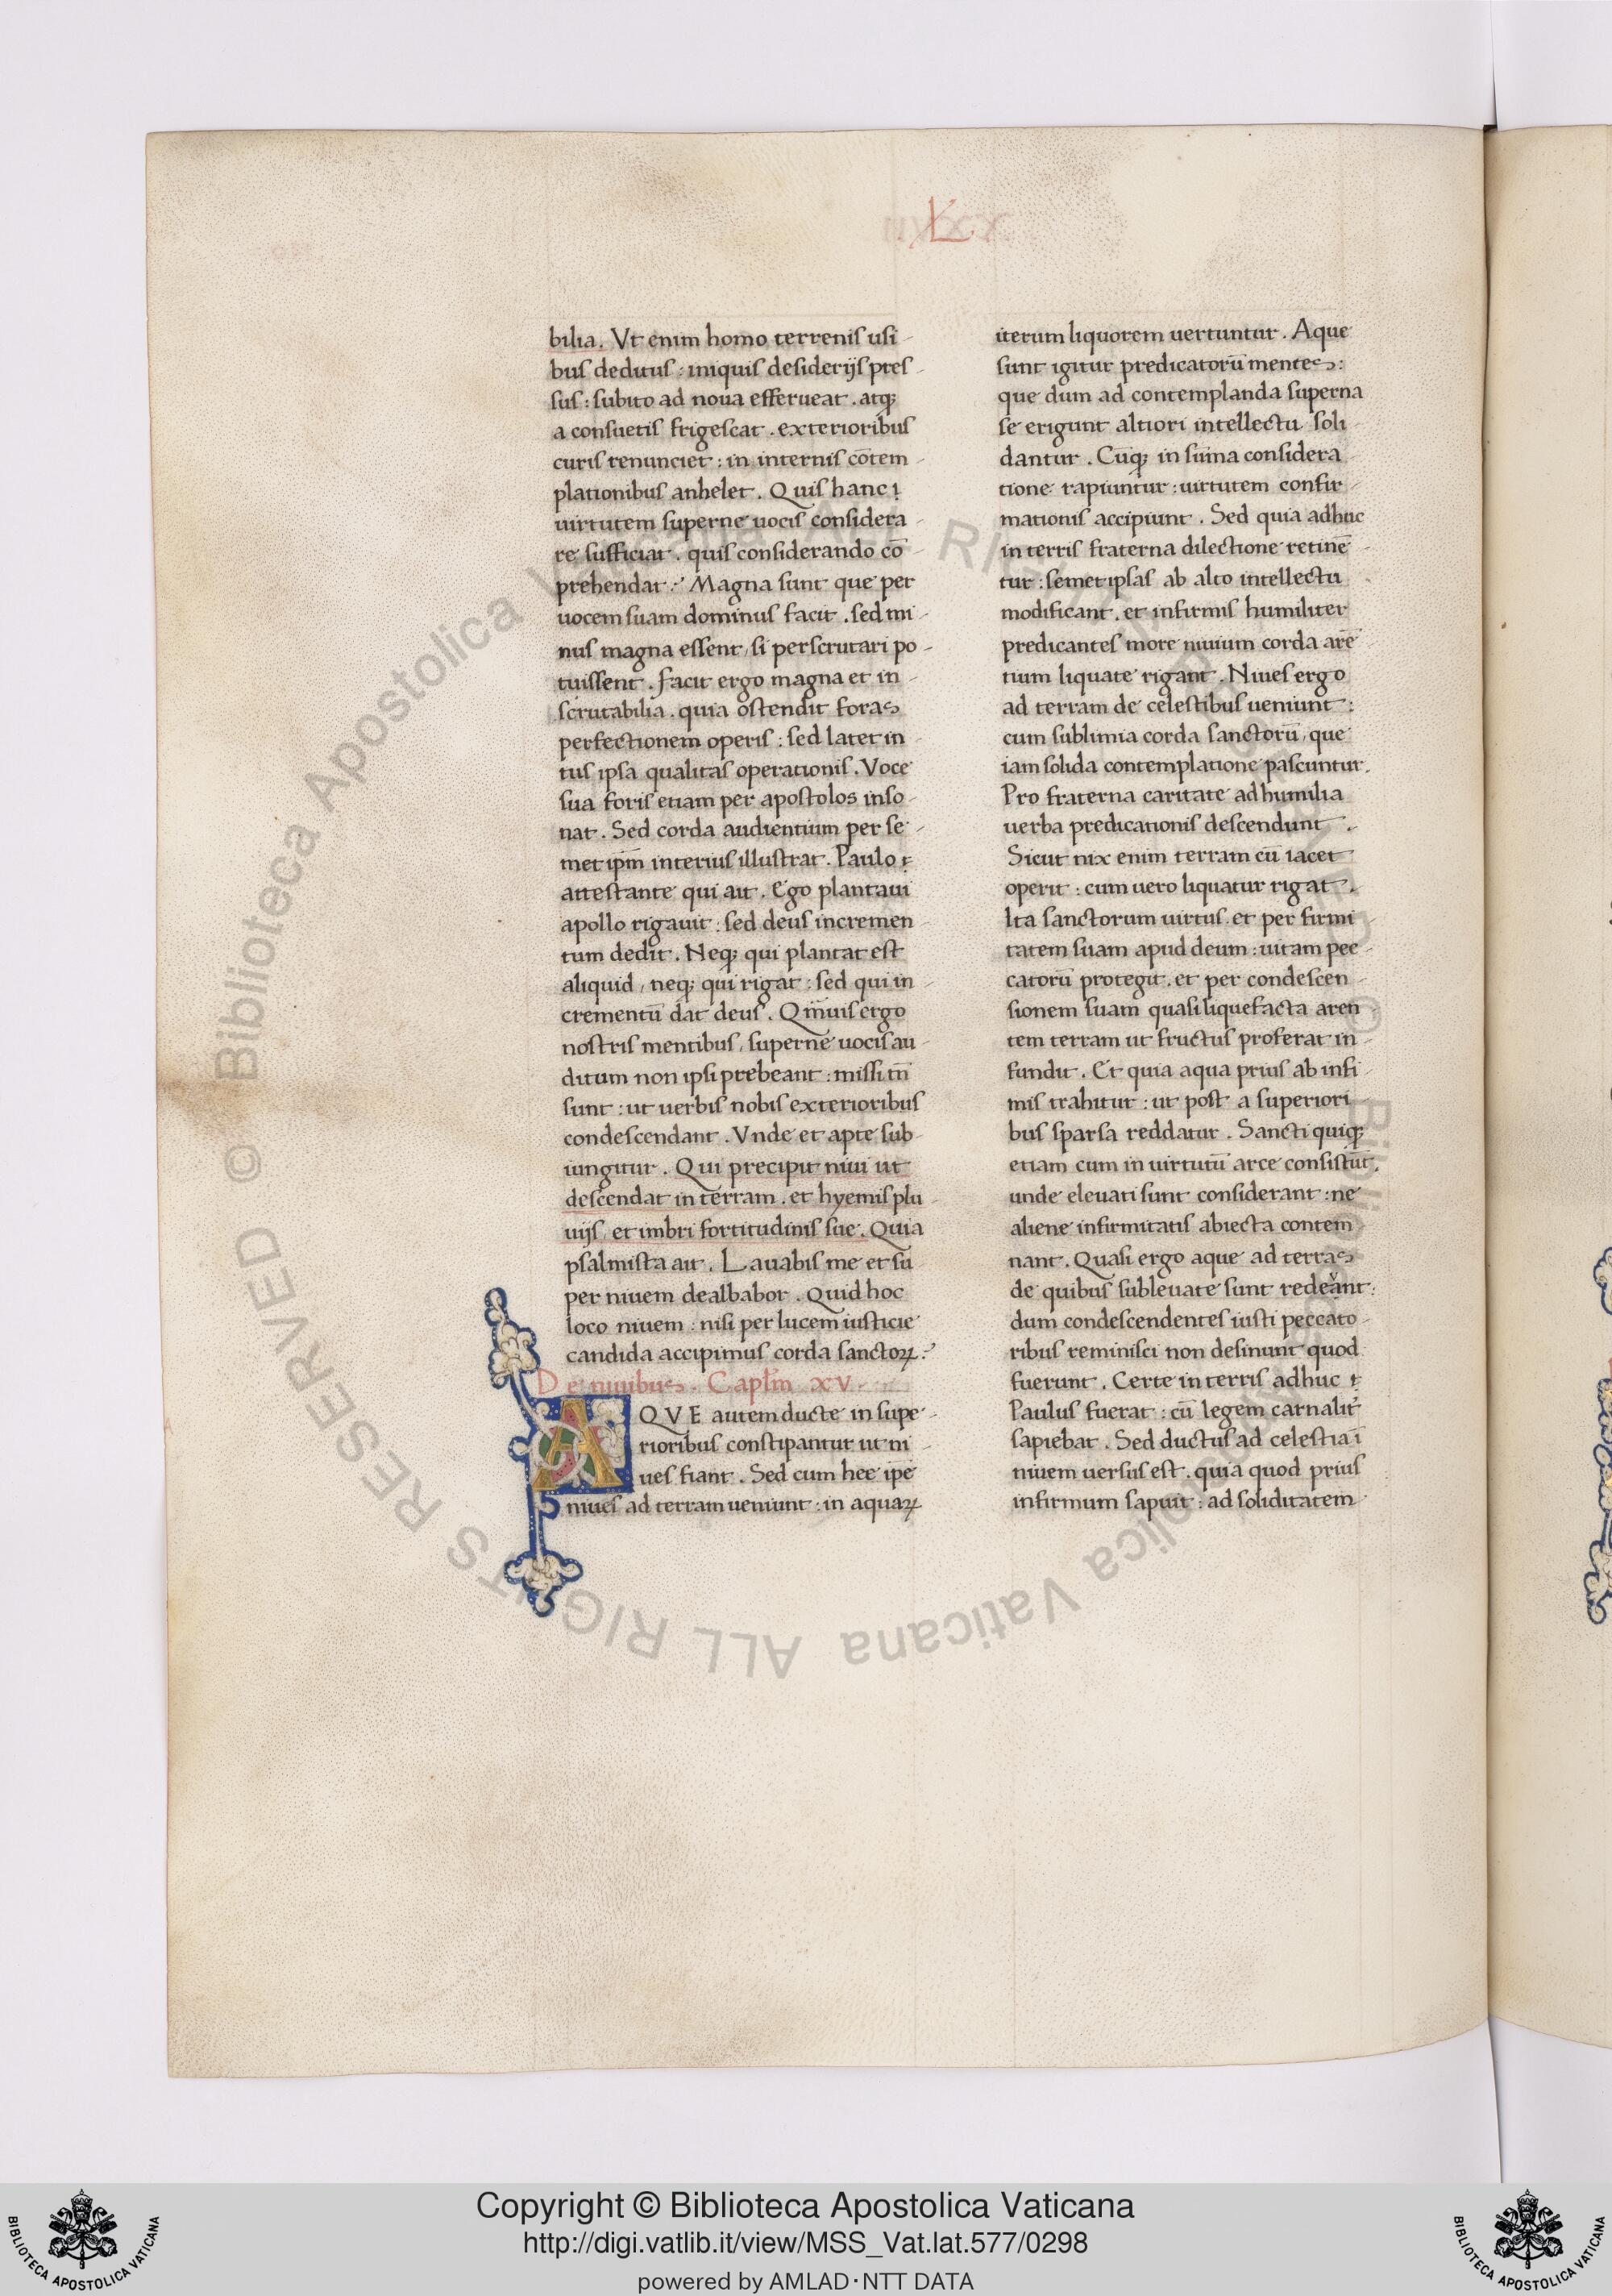 .L.
bilia. Vt enim homo terrenis usi-
bus deditus: iniquis desiderijs pres-
sus: subito ad noua efferueat. atq;
a consuetis frigescat. exterioribus
curis renunciet: in internis cōtem-
plationibus anhelet. Quis hanc
uirtutem superne uocis considera-
re sufficiat. quis considerando cō-
prehendat? Magna sunt que per
uocem suam dominus facit. sed mi-
nus magna essent, si perscrutari po-
tuissent. Facit ergo magna et in-
scrutabilia. quia ostendit foras
perfectionem operis: sed latet in-
tus ipsa qualitas operationis. Voce
sua foris etiam per apostolos inso-
nat. Sed corda audientium per se-
met ip̄m interius illustrat. Paulo
attestante qui ait. Ego plantaui
apollo rigauit: sed deus incremen
tum dedit. Neq; qui plantat est
aliquid, neq; qui rigat: sed qui in-
crementū dat deus. Qm̄uis ergo
nostris mentibus, superne uocis au-
ditum non ipsi prebeant: missi tn̄
sunt: ut uerbis nobis exterioribus
condescendant. Vnde et apte sub-
iungitur. Qui precipit niui ut
descendat in terram. et hyemis plu-
uijs, et imbri fortitudinis sue. Quia
psalmista ait. Lauabis me et su-
per niuem dealbabor. Quid hoc
loco niuem: nisi per lucem iusticie
candida accipimus corda sanctoꝝ.
De niuibus. Capl̄m xv.
AQVE autem ducte in supe-
rioribus constipantur ut ni-
ues fiant. Sed cum hee ipe
niues ad terram ueniunt: in aquaꝝ
iterum liquorem uertuntur. Aque
sunt igitur predicatorū mentes:
que dum ad contemplanda superna
se erigunt altiori intellectu soli-
dantur. Cūq; in sūma considera-
tione rapiuntur: uirtutem confir-
mationis accipiunt. Sed quia adhuc
in terris fraterna dilectione retinē-
tur: semet ipsas ab alto intellectu
modificant. et infirmis humiliter
predicantes more niuium corda arē-
tium liquate rigant. Niues ergo
ad terram de celestibus ueniunt:
cum sublimia corda sanctorū, que
iam solida contemplatione pascuntur.
Pro fraterna caritate ad humilia
uerba predicationis descendunt.
Sicut nix enim terram cū iacet
operit: cum uero liquatur rigat.
Ita sanctorum uirtus. et per firmi-
tatem suam apud deum: uitam pec-
catorū protegit. et per condescen-
sionem suam quasi liquefacta aren-
tem terram ut fructus proferat in-
fundit. Et quia aqua prius ab infi-
mis trahitur: ut post a superiori-
bus sparsa reddatur. Sancti quiq;
etiam cum in uirtutū arce consistūt,
unde eleuati sunt considerant: ne
aliene infirmitatis abiecta contem-
nant. Quasi ergo aque ad terras
de quibus subleuate sunt redeant:
dum condescendentes iusti peccato-
ribus reminisci non desinunt quod
fuerunt. Certe in terris adhuc
Paulus fuerat: cū legem carnalit̄
sapiebat. Sed ductus ad celestia ī
niuem uersus est. quia quod prius
infirmum sapuit: ad soliditatem
© Biblioteca Apostolica Vaticana ALL RIGHTS RESERVED
© Biblioteca Apostolica Vaticana ALL RIGHTS RESERVED
Copyright © Biblioteca Apostolica Vaticana
http://digi.vatlib.it/view/MSS_Vat.lat.577/0298
powered by AMLAD·NTT DATA
BIBLIOTECA APOSTOLICA VATICANA
BIBLIOTECA APOSTOLICA VATICANA